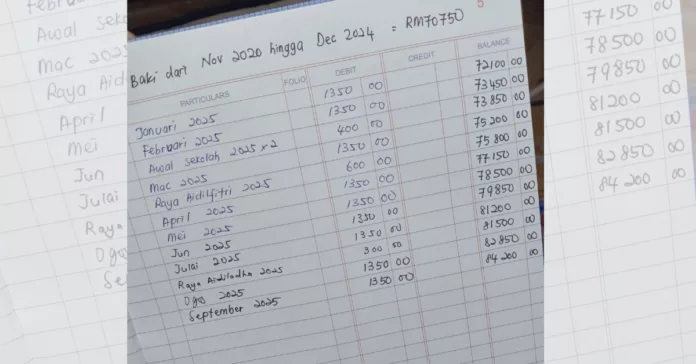 Baki dari Nov 2020 hingga Dec 2024 = RM70750
PARTICULARS FOLIO DEBIT CREDIT BALANCE
Januari 2025 1350 00 72100 00
Februari 2025 1350 00 73450 00
Awal sekolah 2025 x 2 400 00 73850 00
Mac 2025 1350 00 75200 00
Raya Aidilfitri 2025 600 00 75800 00
April 2025 1350 00 77150 00
Mei 2025 1350 00 78500 00
Jun 2025 1350 00 79850 00
Julai 2025 1350 00 81200 00
Raya Aidiladha 2025 300 00 81500 00
Ogos 2025 1350 00 82850 00
September 2025 1350 00 84200 00
Awal seko
Mac 202
Raya Aidi
April
Mei
Jun
Julai
Raya
Ogos
Se
77150 00
78500 00
79850 00
81200 00
81500 00
82850 00
84200 00